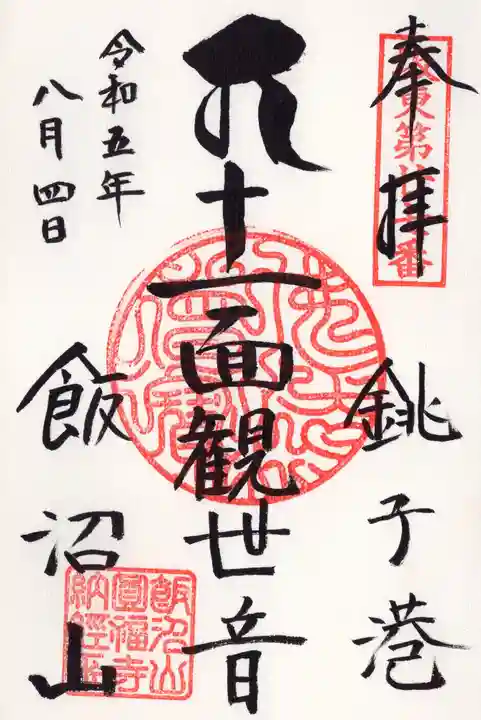 奉拝
坂東第廿七番
銚子港
十一面観世音
飯沼山
令和五年
八月四日
飯沼山
圓福寺
納經